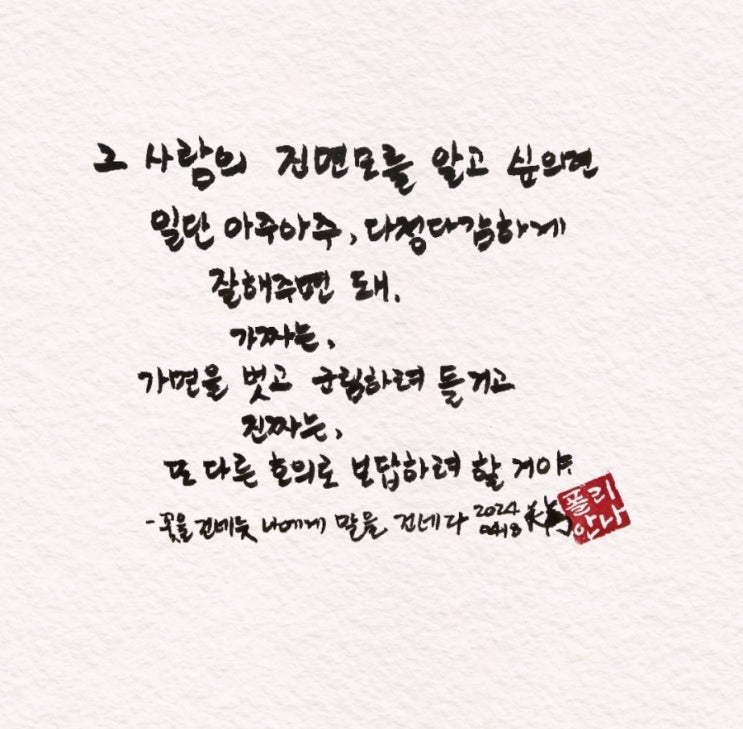 그 사람의 진면모를 알고 싶으면
일단 아주아주, 다정다감하게
잘해주면 돼.
가짜는,
가면을 벗고 군림하려 들거고
진짜는,
또 다른 호의로 보답하려 할 거야.
- 꽃을 건네듯 나에게 말을 건네다 2024
04.18
폴리
안나